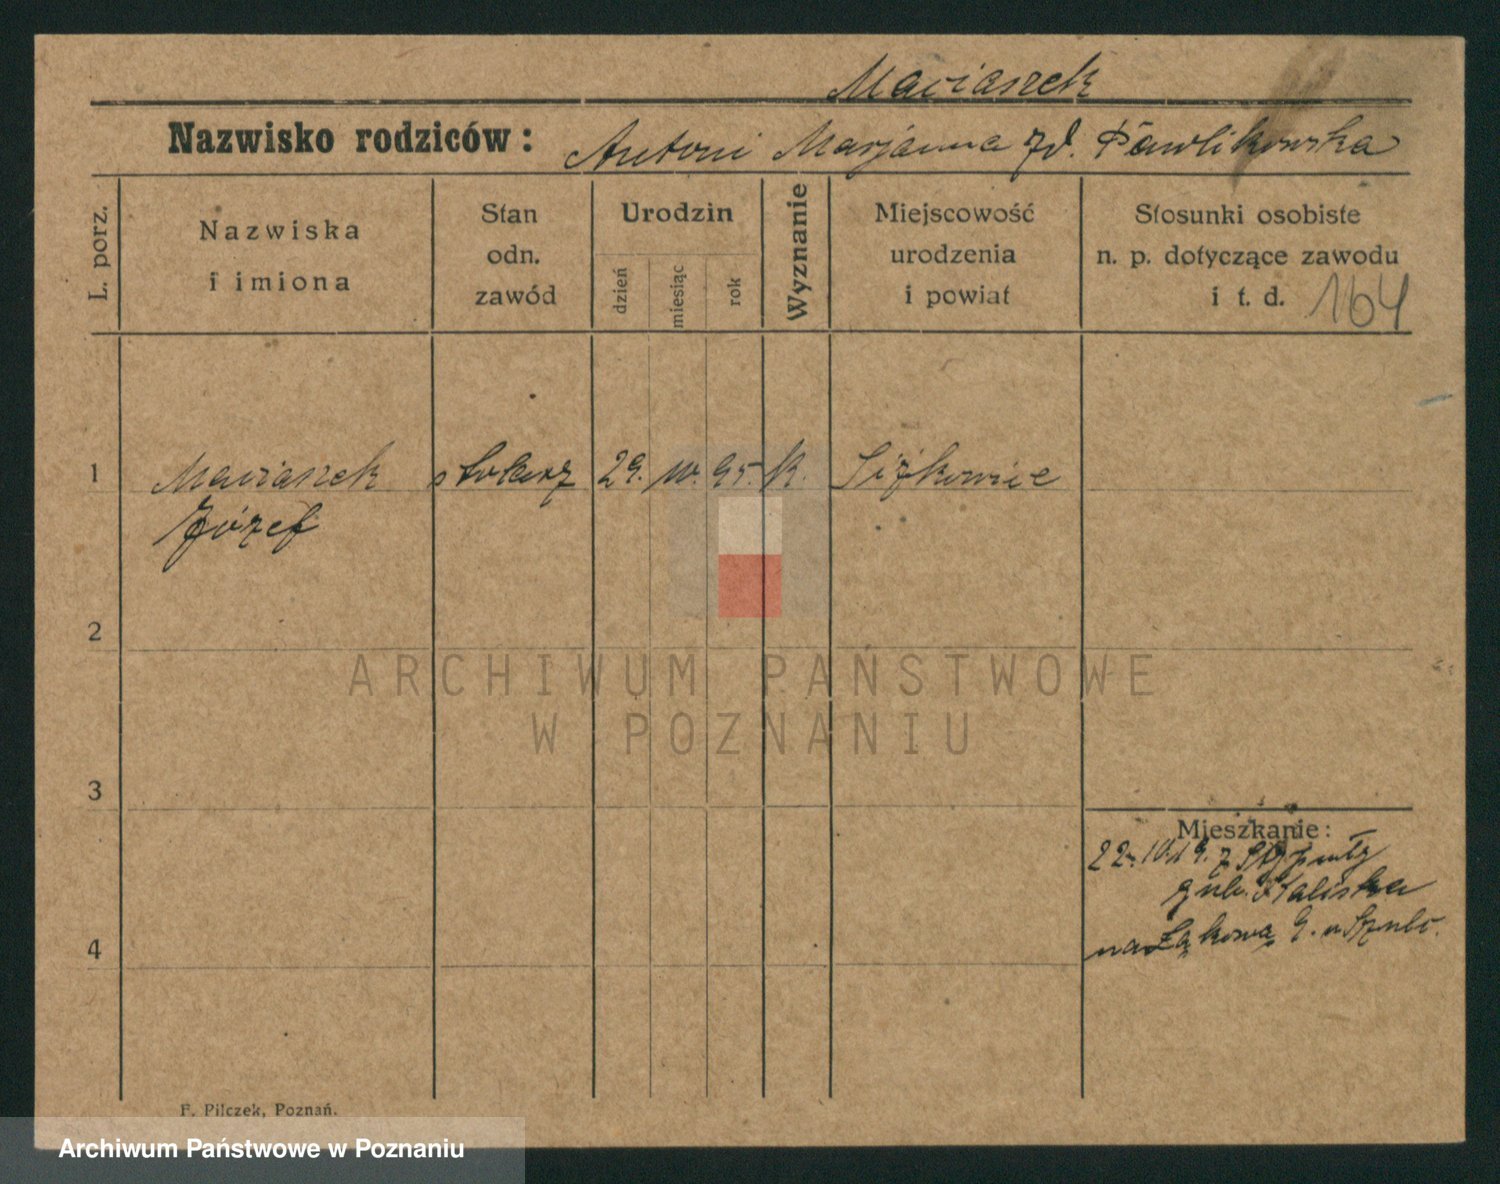 Maciaszek
Nazwisko rodziców: Antoni Marjanna zd. Pawlikowska
L. porz.
Nazwiska
i imiona
Stan
odn.
zawód
Urodzin
dzień
miesiąc
rok
Wyznanie
Miejscowość
urodzenia
i powiat
Stosunki osobiste
n. p. dotyczące zawodu
i t. d. 164
1 Maciaszek stolarz 29. 10. 95. K.
Józef
2
ARCHIWUM PAŃSTWOWE
W POZNANIU
3
Mieszkanie:
22.10.19. z
gub. Kaliska
na Łąkową 9. u
4
F. Pilczek, Poznań.
Archiwum Państwowe w Poznaniu